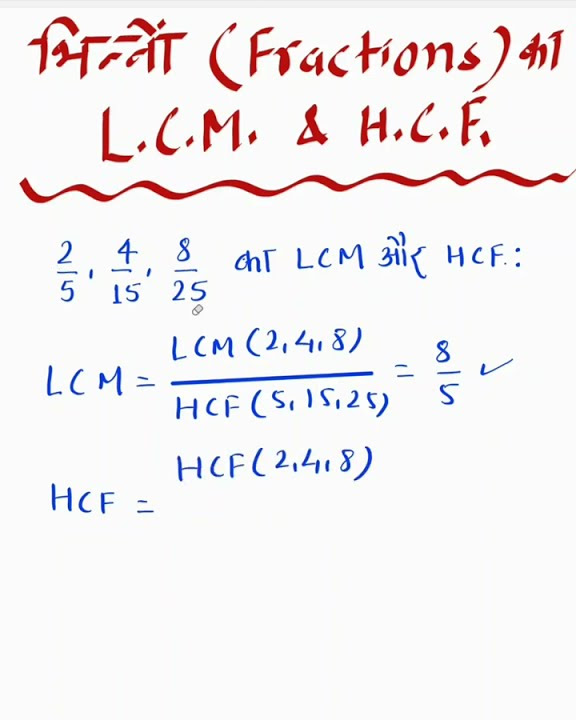 भिन्नों (Fractions) का
L.C.M. & H.C.F.
2/5, 4/15, 8/25 का LCM और HCF:
LCM = LCM(2,4,8)/HCF(5,15,25) = 8/5 ✓
HCF = HCF(2,4,8)